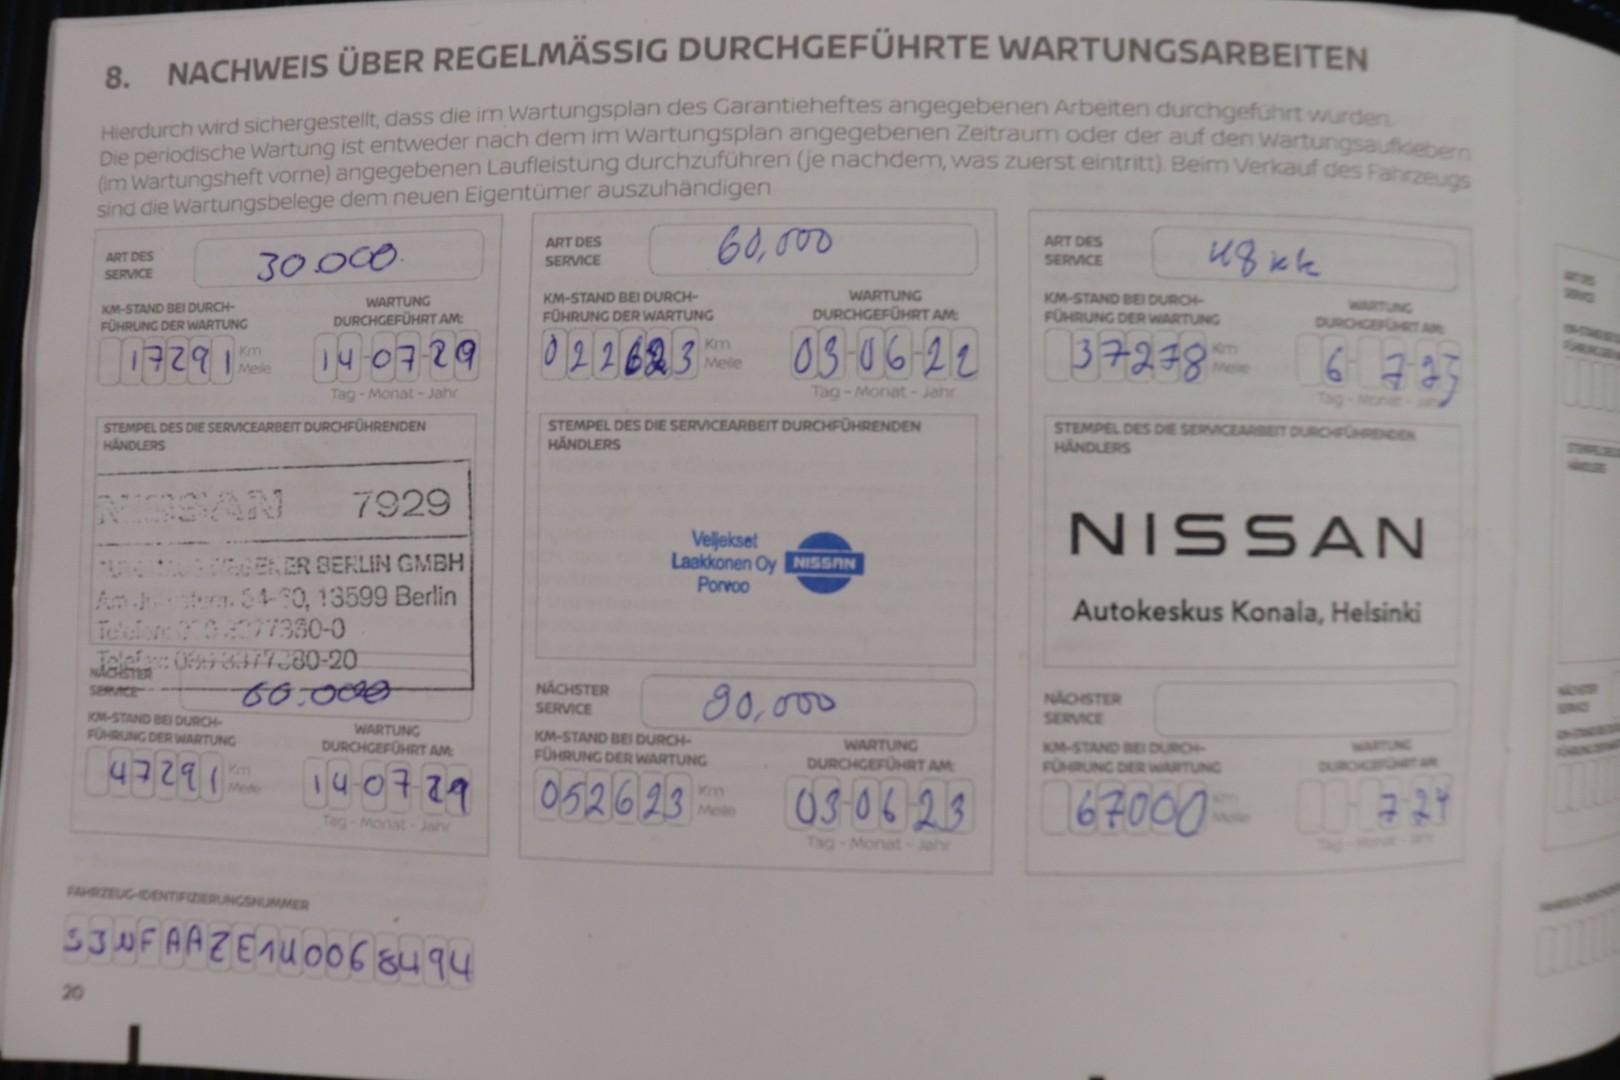 8. NACHWEIS ÜBER REGELMÄSSIG DURCHGEFÜHRTE WARTUNGSARBEITEN
Hierdurch wird sichergestellt, dass die im Wartungsplan des Garantieheftes angegebenen Arbeiten durchgeführt wurden.
Die periodische Wartung ist entweder nach dem im Wartungsplan angegebenen Zeitraum oder der auf den Wartungsaufklebern
(im Wartungsheft vorne) angegebenen Laufleistung durchzuführen (je nachdem, was zuerst eintritt). Beim Verkauf des Fahrzeugs
sind die Wartungsbelege dem neuen Eigentümer auszuhändigen
ART DES
SERVICE
30.000.
KM-STAND BEI DURCH-
FÜHRUNG DER WARTUNG
WARTUNG
DURCHGEFÜHRT AM:
17291 Km
Meile
14-07-
Tag - Monat - Jahr
STEMPEL DES DIE SERVICEARBEIT DURCHFÜHRENDEN
HÄNDLERS
NISSAN 7929
BERLIN GMBH
13599 Berlin
NÄCHSTER
SERVICE
60.000
KM-STAND BEI DURCH-
FÜHRUNG DER WARTUNG
WARTUNG
DURCHGEFÜHRT AM:
47291 Km
Meile
14-07-
Tag - Monat - Jahr
ART DES
SERVICE
60,000
KM-STAND BEI DURCH-
FÜHRUNG DER WARTUNG
WARTUNG
DURCHGEFÜHRT AM:
022623 Km
Meile
03-06-22
Tag - Monat - Jahr
STEMPEL DES DIE SERVICEARBEIT DURCHFÜHRENDEN
HÄNDLERS
Veljekset
Laakkonen Oy NISSAN
Porvoo
NÄCHSTER
SERVICE
90,000
KM-STAND BEI DURCH-
FÜHRUNG DER WARTUNG
WARTUNG
DURCHGEFÜHRT AM:
052623 Km
Meile
03-06-23
Tag - Monat - Jahr
ART DES
SERVICE
48 kk
KM-STAND BEI DURCH-
FÜHRUNG DER WARTUNG
WARTUNG
DURCHGEFÜHRT AM:
37278 Km
Meile
6 7
Tag - Monat - Jahr
STEMPEL DES DIE SERVICEARBEIT DURCHFÜHRENDEN
HÄNDLERS
NISSAN
Autokeskus Konala, Helsinki
NÄCHSTER
SERVICE
KM-STAND BEI DURCH-
FÜHRUNG DER WARTUNG
WARTUNG
DURCHGEFÜHRT AM:
67000 Km
Meile
7-24
Tag - Monat - Jahr
FAHRZEUG-IDENTIFIZIERUNGSNUMMER
SJNFAAZE1U0068494
20